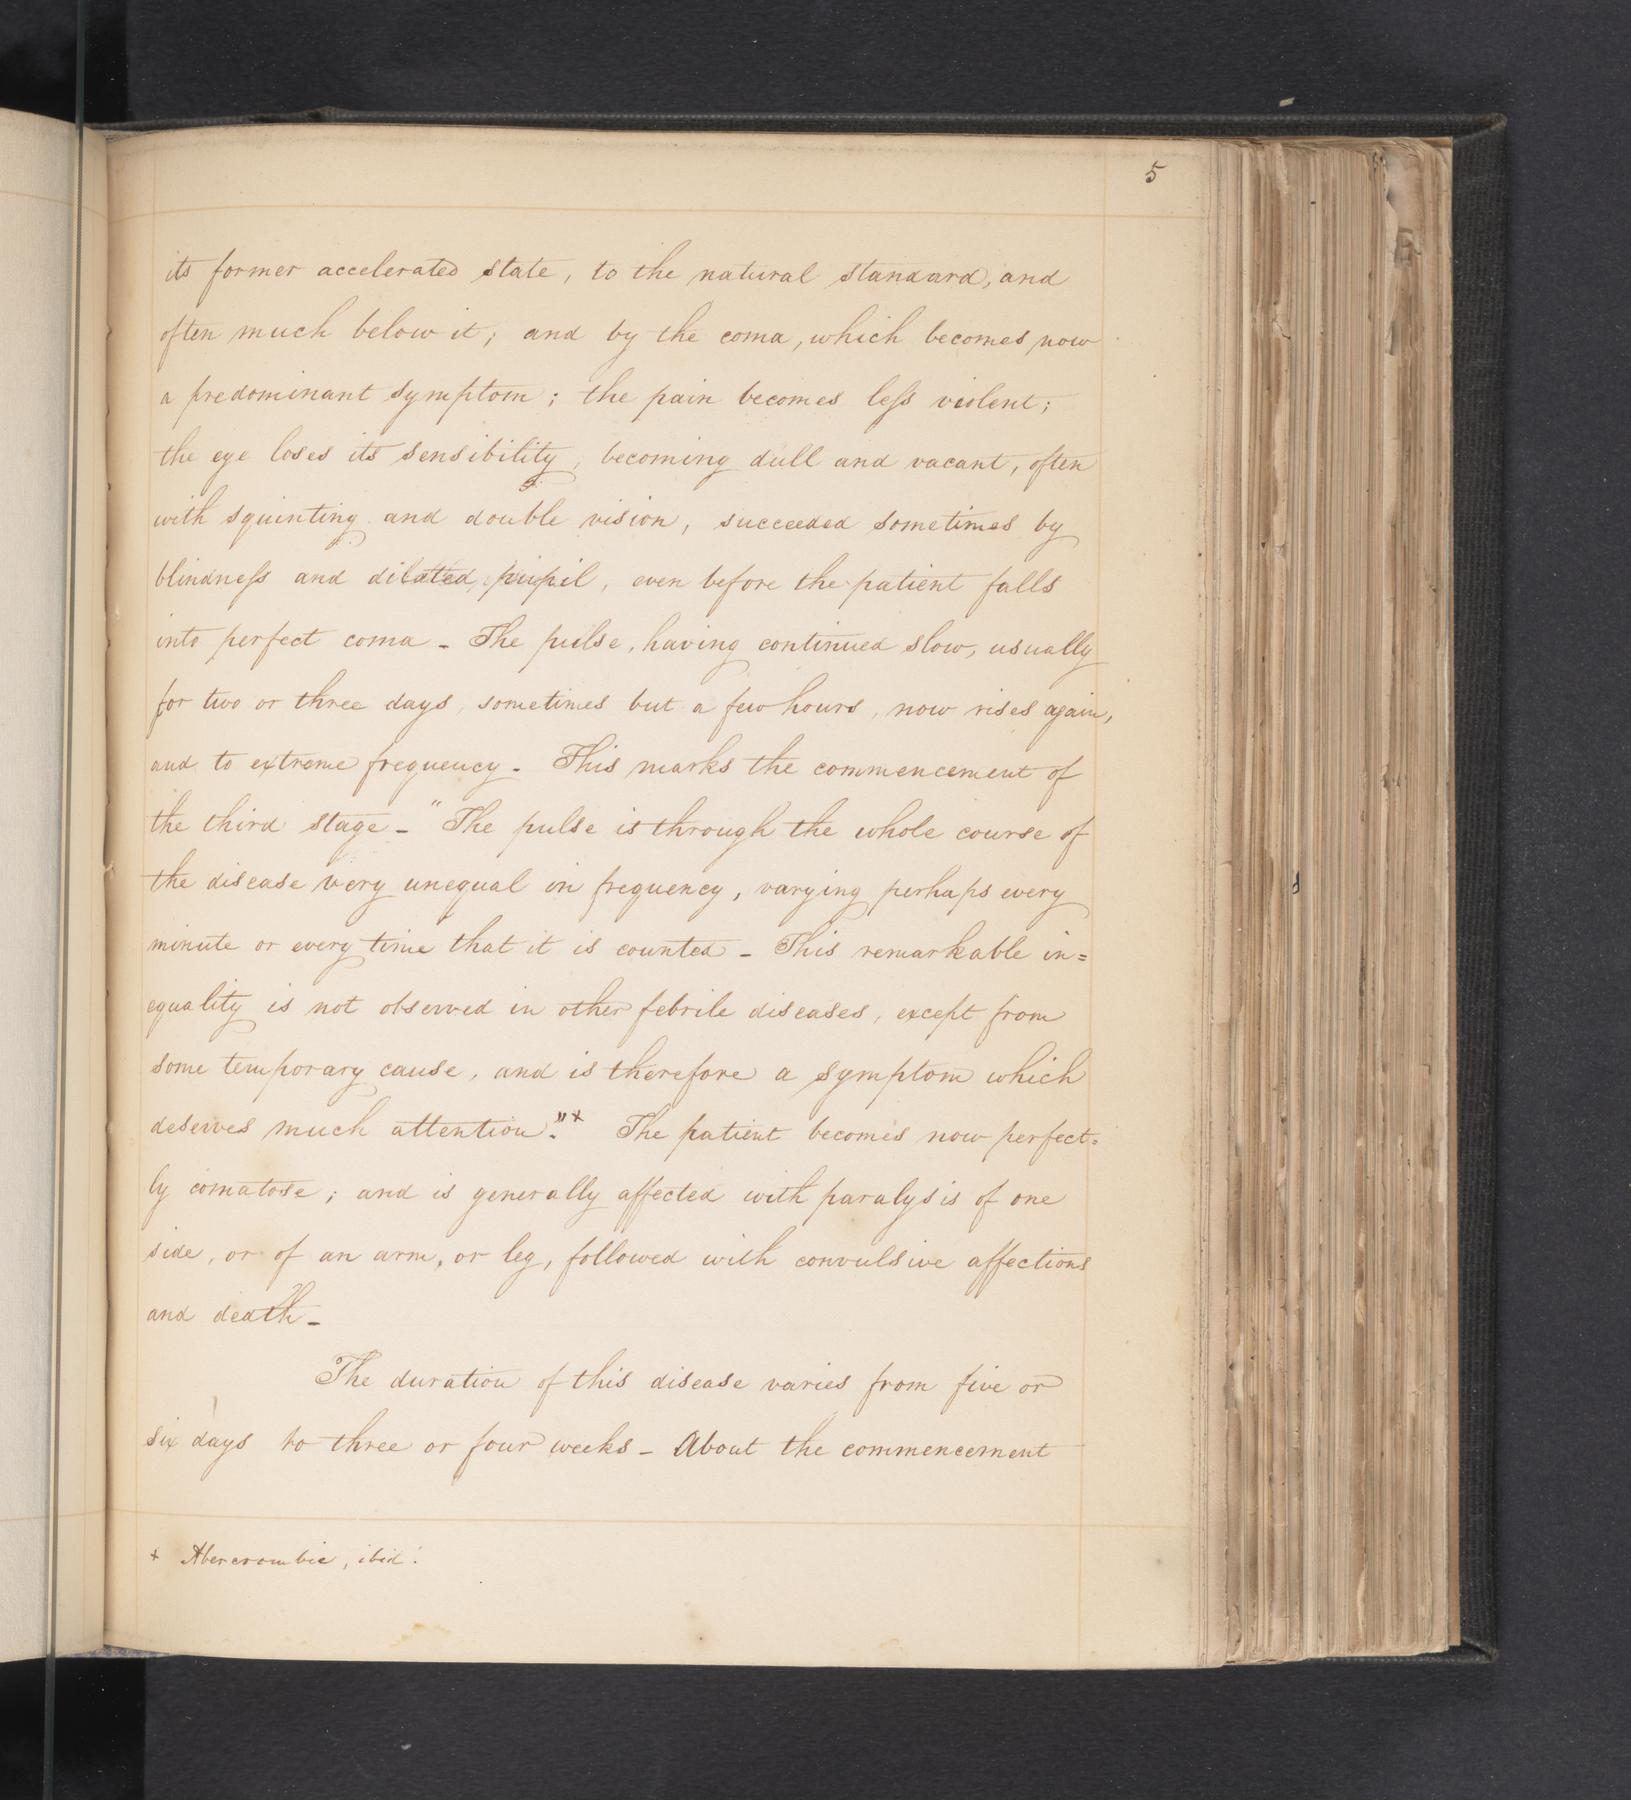 5
its former accelerated state, to the natural standard, and
often much below it; and by the coma, which becomes now
a predominant symptom; the pain becomes leſs violent;
the eye loses its sensibility, becoming dull and vacant, often
with squinting and double vision, succeeded sometimes by
blindneſs and dilated pupil, even before the patient falls
into perfect coma - The pulse, having continued slow, usually
for two or three days, sometimes but a few hours, now rises again,
and to extreme frequency - This marks the commencement of
the third stage - "The pulse is through the whole course of
the disease very unequal in frequency, varying perhaps every
minute or every time that it is counted - This remarkable in=
equality is not observed in other febrile diseases, except from
some temporary cause, and is therefore a symptom which
deserves much attention."+ The patient becomes now perfect=
ly comatose; and is generally affected with paralysis of one
side, or of an arm, or leg, followed with convulsive affections
and death -
The duration of this disease varies from five or
six days to three or four weeks - About the commencement
+ Abercrombie, ibid: